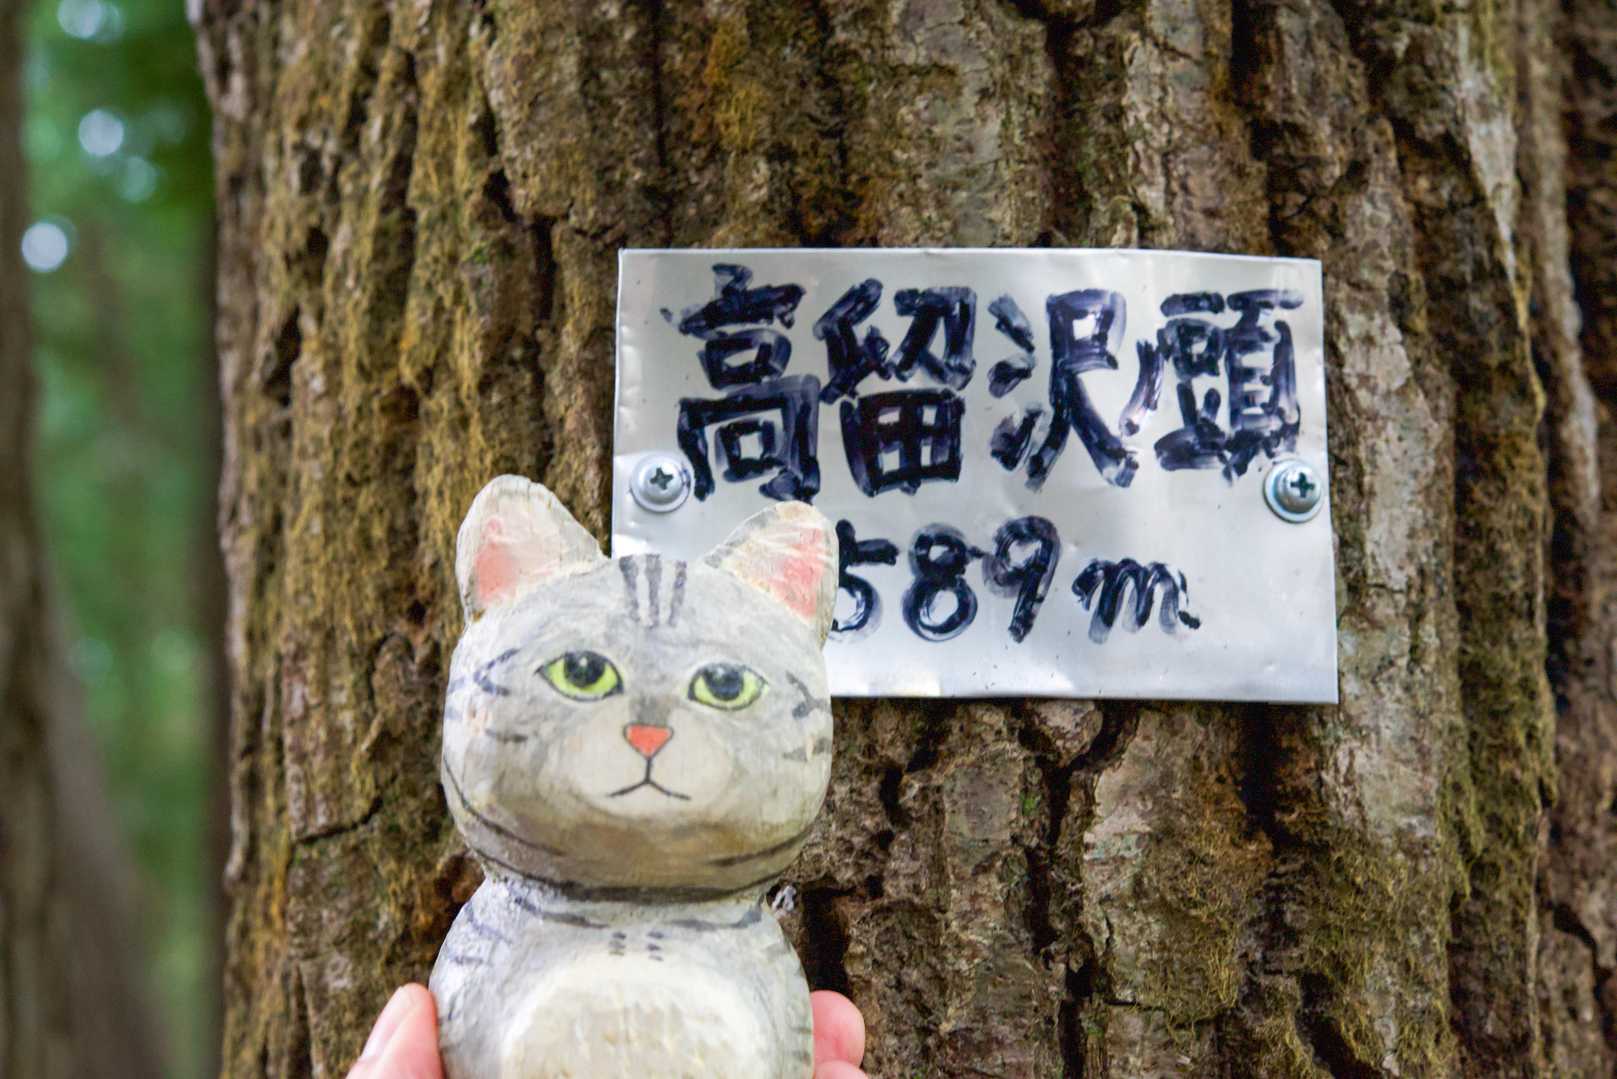 高留沢頭
589m